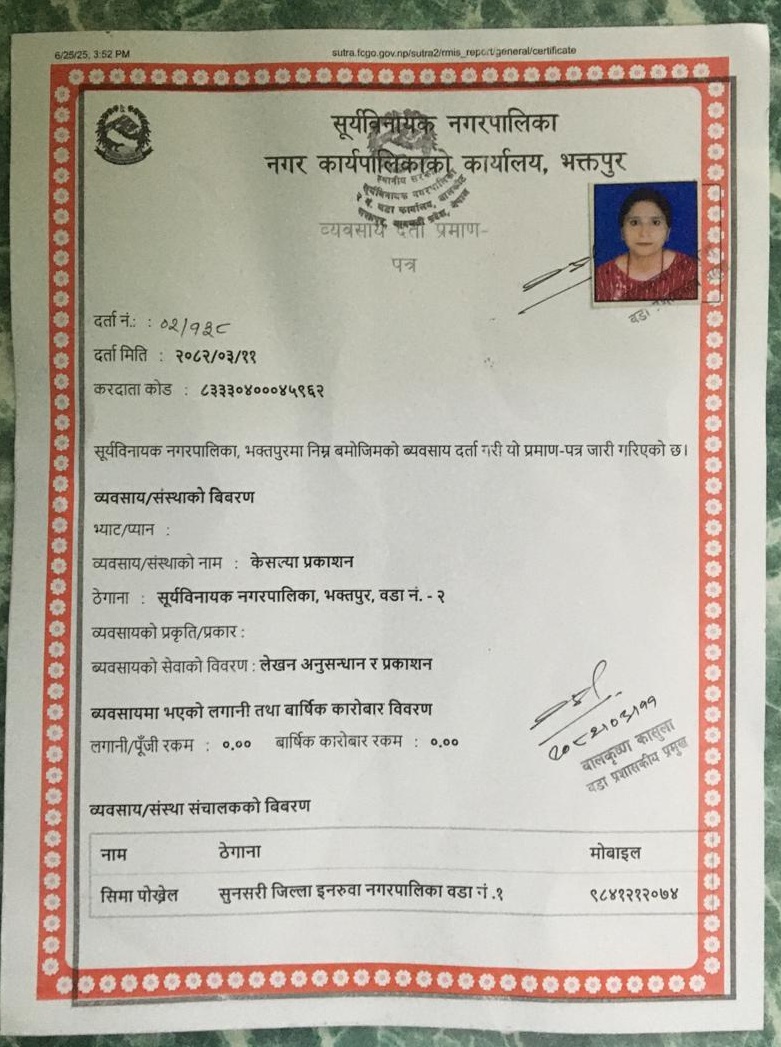 6/25/25, 3:52 PM sutra.fcgo.gov.np/sutra2/rmis_report/general/certificate
सूर्यविनायक नगरपालिका
नगर कार्यपालिकाको कार्यालय, भक्तपुर
सूर्यविनायक नगरपालिका
२ नं. वडा कार्यालय,
व्यवसाय दर्ता प्रमाण-
पत्र
वडा
दर्ता नं.: : ०२/१३८
दर्ता मिति : २०८२/०३/११
करदाता कोड : ८३३३०४०००४५९६२
सूर्यविनायक नगरपालिका, भक्तपुरमा निम्न बमोजिमको ब्यवसाय दर्ता गरी यो प्रमाण-पत्र जारी गरिएको छ।
व्यवसाय/संस्थाको बिबरण
भ्याट/प्यान :
व्यवसाय/संस्थाको नाम : केसल्या प्रकाशन
ठेगाना : सूर्यविनायक नगरपालिका, भक्तपुर, वडा नं. - २
व्यवसायको प्रकृति/प्रकार :
ब्यवसायको सेवाको विवरण : लेखन अनुसन्धान र प्रकाशन
ब्यवसायमा भएको लगानी तथा बार्षिक कारोबार विवरण
लगानी/पूँजी रकम : ०.०० बार्षिक कारोबार रकम : ०.००
२०८२।०३।११
बालकृष्ण कासुला
वडा प्रशासकीय प्रमुख
ब्यवसाय/संस्था संचालकको बिबरण
नाम ठेगाना मोबाइल
सिमा पोख्रेल सुनसरी जिल्ला इनरुवा नगरपालिका वडा नं .१ ९८४१२१२०७४